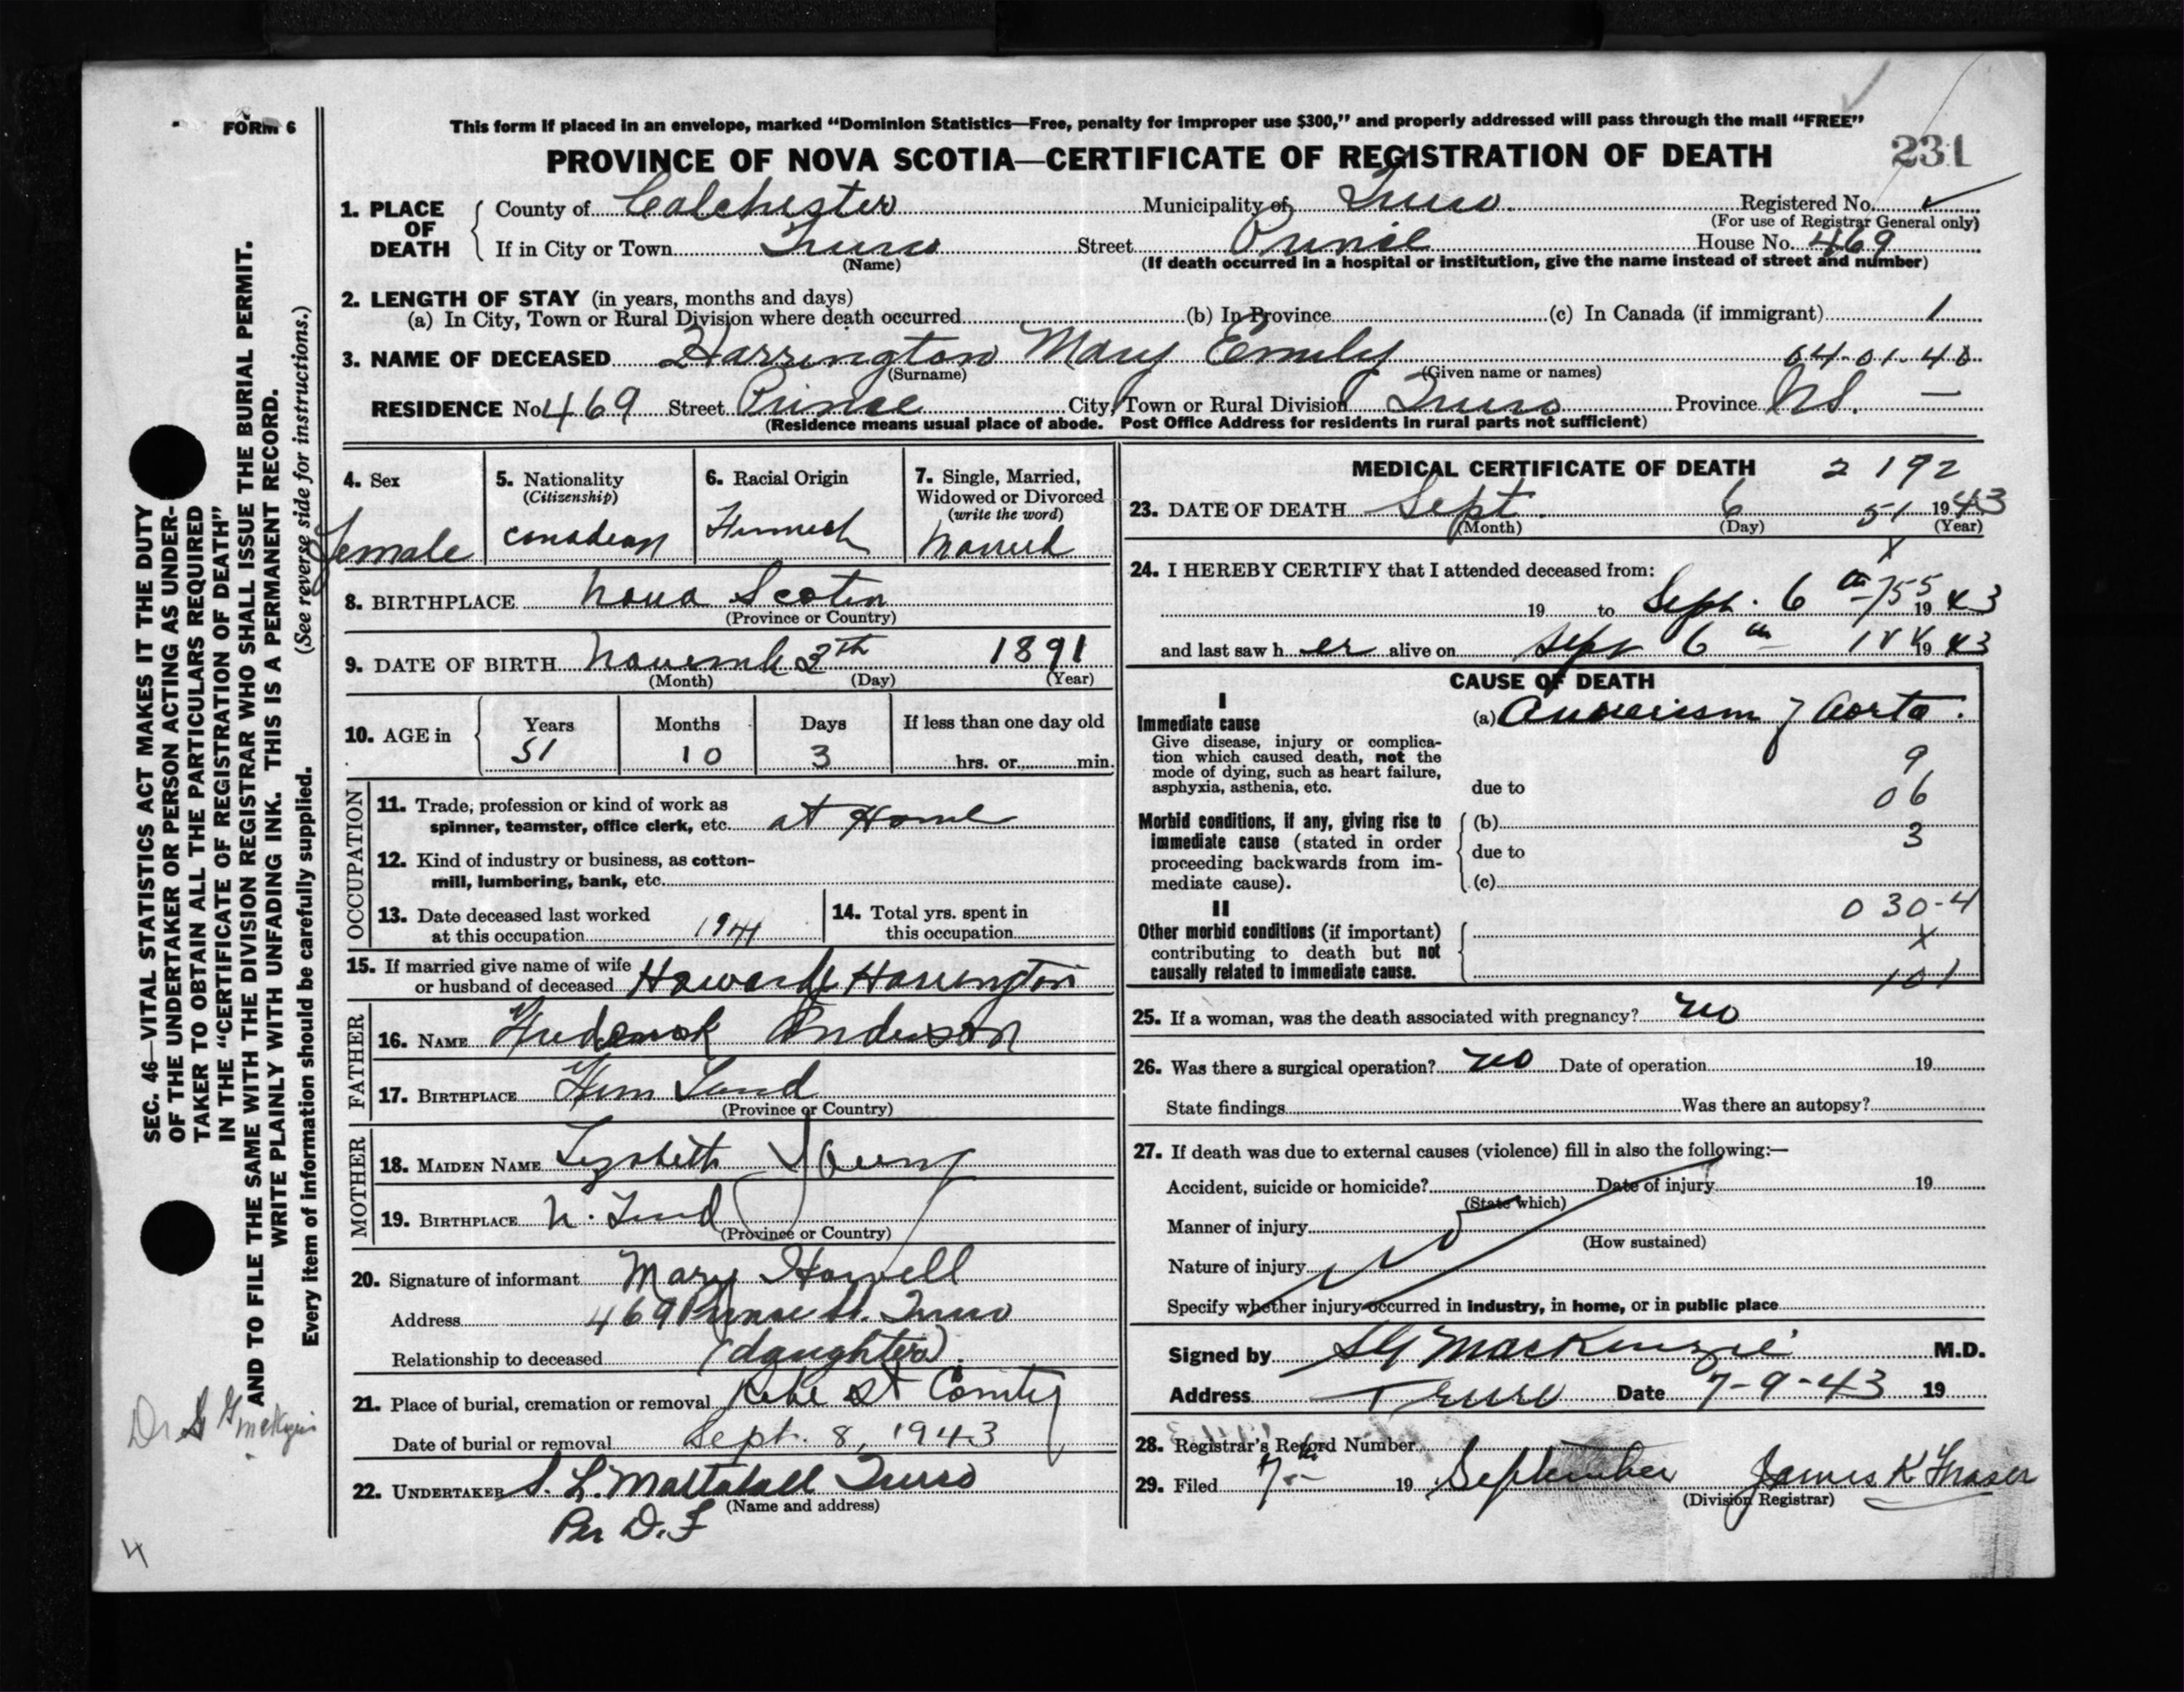 FORM 6
This form if placed in an envelope, marked “Dominion Statistics—Free, penalty for improper use $300,” and properly addressed will pass through the mail “FREE”
PROVINCE OF NOVA SCOTIA—CERTIFICATE OF REGISTRATION OF DEATH
231
1. PLACE OF DEATH
County of Colchester Municipality of Truro Registered No.
(For use of Registrar General only)
If in City or Town Truro Street Prince House No. 469
(Name) (If death occurred in a hospital or institution, give the name instead of street and number)
2. LENGTH OF STAY (in years, months and days)
(a) In City, Town or Rural Division where death occurred (b) In Province (c) In Canada (if immigrant) 1
3. NAME OF DECEASED Harrington Mary Emily 04-01-40
(Surname) (Given name or names)
RESIDENCE No. 469 Street Prince City, Town or Rural Division Truro Province NS. —
(Residence means usual place of abode. Post Office Address for residents in rural parts not sufficient)
4. Sex
Female
5. Nationality
(Citizenship)
Canadian
6. Racial Origin
7. Single, Married, Widowed or Divorced
(write the word)
Married
8. BIRTHPLACE Nova Scotia
(Province or Country)
9. DATE OF BIRTH 3th 1891
(Month) (Day) (Year)
10. AGE in
Years Months Days If less than one day old
51 10 3 hrs. or min.
OCCUPATION
11. Trade, profession or kind of work as
spinner, teamster, office clerk, etc. at Home
12. Kind of industry or business, as cotton-
mill, lumbering, bank, etc.
13. Date deceased last worked
at this occupation 1941
14. Total yrs. spent in
this occupation
15. If married give name of wife
or husband of deceased Harrington
FATHER
16. NAME Frederick Anderson
17. BIRTHPLACE
(Province or Country)
MOTHER
18. MAIDEN NAME Young
19. BIRTHPLACE
(Province or Country)
20. Signature of informant Mary Howell
Address 469 Prince St. Truro
Relationship to deceased (daughter)
21. Place of burial, cremation or removal
Date of burial or removal Sept. 8, 1943
22. UNDERTAKER S. L. Mattatall Truro
(Name and address)
Per D. F
MEDICAL CERTIFICATE OF DEATH 2 192
23. DATE OF DEATH Sept. 6 51 1943
(Month) (Day) (Year)
x
24. I HEREBY CERTIFY that I attended deceased from:
19 to Sept. 6 19 43
and last saw h er alive on Sept 6 19 43
CAUSE OF DEATH
I
Immediate cause
Give disease, injury or complica-
tion which caused death, not the
mode of dying, such as heart failure,
asphyxia, asthenia, etc.
(a) Aneurism of Aorta.
9
due to
06
Morbid conditions, if any, giving rise to
immediate cause (stated in order
proceeding backwards from im-
mediate cause).
(b)
3
due to
(c)
030-4
II
Other morbid conditions (if important)
contributing to death but not
causally related to immediate cause.
x
101
25. If a woman, was the death associated with pregnancy? no
26. Was there a surgical operation? no Date of operation 19
State findings Was there an autopsy?
27. If death was due to external causes (violence) fill in also the following:—
Accident, suicide or homicide? Date of injury 19
(State which)
Manner of injury
(How sustained)
Nature of injury
No
Specify whether injury occurred in industry, in home, or in public place
Signed by S G MacKenzie M.D.
Address Truro Date 7-9-43 19
28. Registrar's Record Number
29. Filed 7th 19 September James K Fraser
(Division Registrar)
SEC. 46—VITAL STATISTICS ACT MAKES IT THE DUTY
OF THE UNDERTAKER OR PERSON ACTING AS UNDER-
TAKER TO OBTAIN ALL THE PARTICULARS REQUIRED
IN THE “CERTIFICATE OF REGISTRATION OF DEATH”
AND TO FILE THE SAME WITH THE DIVISION REGISTRAR WHO SHALL ISSUE THE BURIAL PERMIT.
WRITE PLAINLY WITH UNFADING INK. THIS IS A PERMANENT RECORD.
Every item of information should be carefully supplied. (See reverse side for instructions.)
Dr S G
4